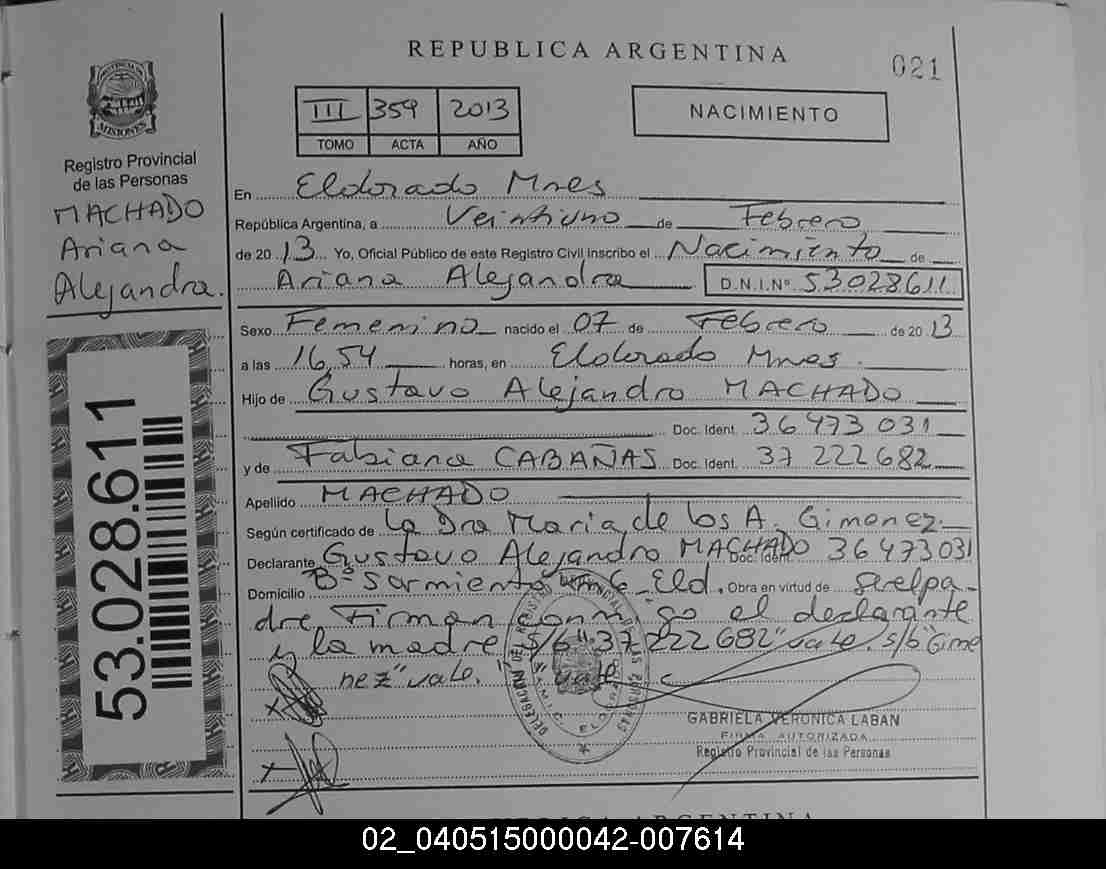 REPUBLICA ARGENTINA
021
PROVINCIA DE
MISIONES
Registro Provincial
de las Personas
MACHADO
Ariana
Alejandra.
53.028.611
III 359 2013
TOMO ACTA AÑO
NACIMIENTO
En Eldorado Mnes
República Argentina, a Veintiuno de Febrero
de 2013 Yo, Oficial Público de este Registro Civil Inscribo el Nacimiento de
Ariana Alejandra D.N.I.Nº 53028611
Sexo Femenino nacido el 07 de Febrero de 2013
a las 16,54 horas, en Eldorado Mnes.
Hijo de Gustavo Alejandro MACHADO
Doc. Ident. 36473031
y de Fabiana CABAÑAS Doc. Ident. 37222682
Apellido MACHADO
Según certificado de la Dra Maria de los A. Gimenez.
Declarante Gustavo Alejandro MACHADO Doc. Ident. 36473031
Domicilio Bº Sarmiento Eld. Obra en virtud de ser el pa-
dre. Firman conmigo el declarante
y la madre. s/b "37222682" vale. s/b "Gime
nez" vale.
GABRIELA VERONICA LABAN
FIRMA AUTORIZADA
Registro Provincial de las Personas
REPUBLICA ARGENTINA
02_040515000042-007614